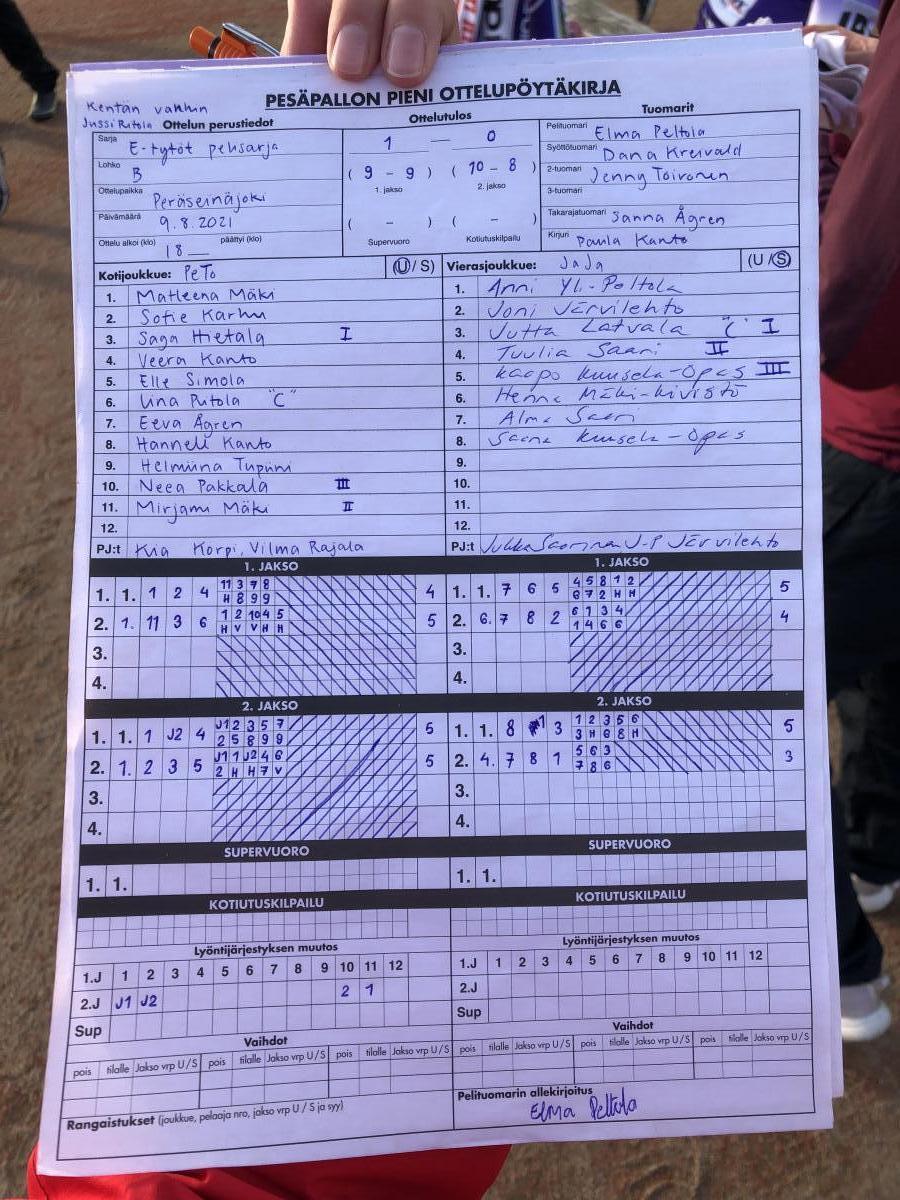 PESÄPALLON PIENI OTTELUPÖYTÄKIRJA
Kentän vanhin
Jussi Ritola
Ottelun perustiedot
Sarja E-tytöt pehsarja
Lohko B
Ottelupaikka Peräseinäjoki
Päivämäärä 9.8.2021
Ottelu alkoi (klo) 18 päättyi (klo)
Ottelutulos
1 — 0
( 9 - 9 ) ( 10 - 8 )
1. jakso 2. jakso
( - ) ( - )
Supervuoro Kotiutuskilpailu
Tuomarit
Pelituomari Elma Peltola
Syöttötuomari Dana Kreivald
2-tuomari Jenny Toivonen
3-tuomari
Takarajatuomari Sanna Ågren
Kirjuri Paula Kanto
Kotijoukkue: PeTo (U / S)
1. Matleena Mäki
2. Sofie Karhu
3. Saga Hietala I
4. Veera Kanto
5. Elle Simola
6. Iina Putola "C"
7. Eeva Ågren
8. Hanneli Kanto
9. Helmiina Tupiini
10. Neea Pakkala III
11. Mirjami Mäki II
12.
PJ:t Kia Korpi, Vilma Rajala
Vierasjoukkue: JaJa (U / S)
1. Anni Yli-Peltola
2. Joni Järvilehto
3. Jutta Latvala "C" I
4. Tuulia Saari II
5. Kaapo Kuusela-Opas III
6. Henna Mäki-Kivistö
7. Alma Saari
8. Saana Kuusela-Opas
9.
10.
11.
12.
PJ:t Jukka Saarinen J-P Järvilehto
1. JAKSO
1. 1. 1 2 4 11 3 7 8 4
H 8 9 9
2. 1. 11 3 6 1 2 10 4 5 5
H V V H H
3.
4.
1. JAKSO
1. 1. 7 6 5 4 5 8 1 2 5
6 7 2 H H
2. 6. 7 8 2 6 1 3 4 4
1 4 6 6
3.
4.
2. JAKSO
1. 1. 1 J2 4 J1 2 3 5 7 5
2 5 8 9 9
2. 1. 2 3 5 J1 1 J2 4 6 5
2 H H 7 V
3.
4.
2. JAKSO
1. 1. 8 1 3 1 2 3 5 6 5
3 H 6 8 H
2. 4. 7 8 1 5 6 3 3
7 8 6
3.
4.
SUPERVUORO
1. 1.
SUPERVUORO
1. 1.
KOTIUTUSKILPAILU
KOTIUTUSKILPAILU
Lyöntijärjestyksen muutos
1.J 1 2 3 4 5 6 7 8 9 10 11 12
2.J J1 J2 2 1
Sup
Lyöntijärjestyksen muutos
1.J 1 2 3 4 5 6 7 8 9 10 11 12
2.J
Sup
Vaihdot
pois tilalle Jakso vrp U/S pois tilalle Jakso vrp U/S pois tilalle Jakso vrp U/S
Vaihdot
pois tilalle Jakso vrp U/S pois tilalle Jakso vrp U/S pois tilalle Jakso vrp U/S
Rangaistukset (joukkue, pelaaja nro, jakso vrp U / S ja syy)
Pelituomarin allekirjoitus
Elma Peltola